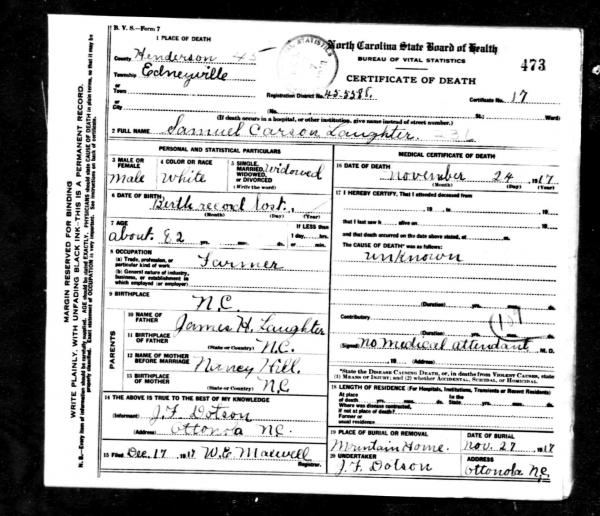 B. V. S.—Form 7
1 PLACE OF DEATH
County Henderson 45
Township Edneyville
or
Town
or
City
North Carolina State Board of Health
BUREAU OF VITAL STATISTICS
473
CERTIFICATE OF DEATH
Registration District No. 45-5586. Certificate No. 17
(No. St.; Ward)
(If death occurs in a hospital, or other institution, give name instead of street number.)
2 FULL NAME Samuel Carson Laughter
PERSONAL AND STATISTICAL PARTICULARS
3 MALE OR FEMALE
Male
4 COLOR OR RACE
White
5 SINGLE, MARRIED, WIDOWED, or DIVORCED
(Write the word)
Widowed
6 DATE OF BIRTH
Birth record lost.
(Month) (Day) (Year)
7 AGE
about 82 yrs. mos. ds.
If LESS than
1 day, hrs.
or min.
8 OCCUPATION
(a) Trade, profession, or particular kind of work Farmer
(b) General nature of industry, business, or establishment in which employed (or employer)
9 BIRTHPLACE
N.C.
PARENTS
10 NAME OF FATHER James H. Laughter
11 BIRTHPLACE OF FATHER
(State or Country) N.C.
12 NAME OF MOTHER BEFORE MARRIAGE Nurney Hill.
13 BIRTHPLACE OF MOTHER
(State or Country) N.C
14 THE ABOVE IS TRUE TO THE BEST OF MY KNOWLEDGE
(Informant) J. F. Dotson
(Address) Ottonola N.C.
15 Filed Dec. 17 1917 W. G. Maxwell
Registrar.
MEDICAL CERTIFICATE OF DEATH
16 DATE OF DEATH
November 24 1917
(Month) (Day) (Year)
17 I HEREBY CERTIFY, That I attended deceased from
19 to 19
that I last saw h alive on 19
and that death occurred on the date above stated, at m.
The CAUSE OF DEATH* was as follows:
unknown
(Duration) yrs. mos. ds.
Contributory
(Duration) yrs. mos. ds.
(Signed) no medical attendant M. D.
19 (Address)
*State the DISEASE CAUSING DEATH, or, in deaths from VIOLENT CAUSES, state (1) MEANS OF INJURY; and (2) whether ACCIDENTAL, SUICIDAL, or HOMICIDAL.
18 LENGTH OF RESIDENCE (For Hospitals, Institutions, Transients or Recent Residents)
At place of death yrs. mos. ds. In the State yrs. mos. ds.
Where was disease contracted, if not at place of death?
Former or usual residence
19 PLACE OF BURIAL OR REMOVAL
Mountain Home.
DATE OF BURIAL
Nov. 27 1917
20 UNDERTAKER
J. F. Dotson
ADDRESS
Ottonola N.C.
MARGIN RESERVED FOR BINDING
WRITE PLAINLY, WITH UNFADING BLACK INK—THIS IS A PERMANENT RECORD.
N. B.—Every item of information should be carefully supplied. AGE should be stated EXACTLY. PHYSICIANS should state CAUSE OF DEATH in plain terms, so that it may be properly classified. Exact statement of OCCUPATION is very important. See instructions on back of certificate.